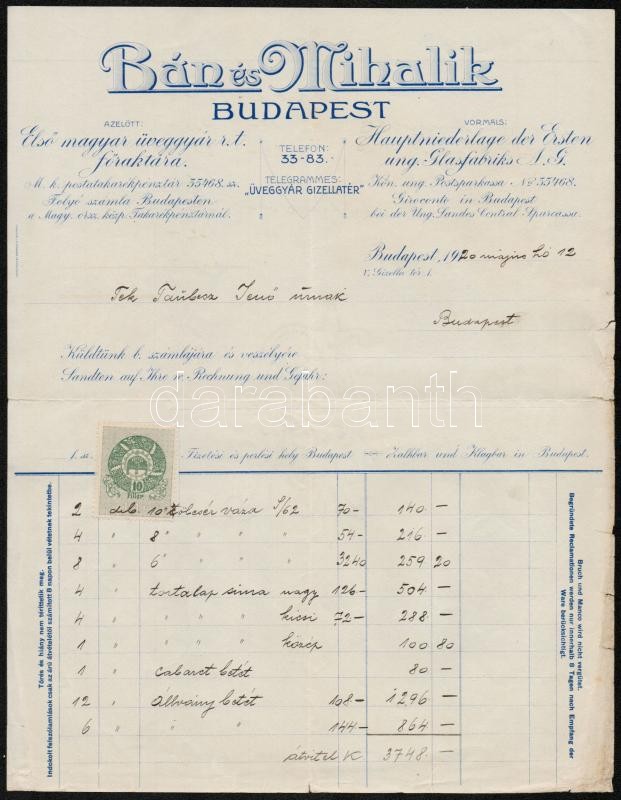 Bán és Mihalik
BUDAPEST
AZELŐTT:
Első magyar üveggyár r.t.
főraktára.
M. k. postatakarékpénztár 35468. sz.
Folyó számla Budapesten
a Magy. orsz. közp. Takarékpénztárnál.
TELEFON:
33-83.
TELEGRAMMES:
„ÜVEGGYÁR GIZELLATÉR"
VORMALS:
Hauptniederlage der Ersten
ung. Glasfabriks A. G.
Kön. ung. Postsparkassa No 35468.
Giroconto in Budapest
bei der Ung. Landes Central Sparcassa.
Budapest, 1920 május hó 12
V. Gizella tér 1.
Tek Jenő úrnak
Budapest
Küldtünk b. számlájára és veszélyére
Sandten auf Ihre w. Rechnung und Gefahr:
darabanth
1. sz. Fizetési és perlési hely Budapest — Zahlbar und Klagbar in Budapest.
10
fillér
2 drb 10" tölcsér váza S/62 70- 140 —
4 " 8" " " " 54- 216 —
8 " 6" " " " 3240 259 20
4 " tortalap sima nagy 126- 504 —
4 " " " " kicsi 72- 288 —
1 " " " " közép 100 80
1 " cabaret betét 80 —
12 " állvány betét 108- 1296 —
6 " " " 144- 864 —
átvitel K 3748 —
Törés és hiány nem téríttetik meg.
Indokolt felszólamlások csak az árú átvételétől számított 8 napon belül vétetnek tekintetbe.
Bruch und Manco wird nicht vergütet.
Begründete Reclamationen werden nur innerhalb 8 Tagen nach Empfang der
Ware berücksichtigt.